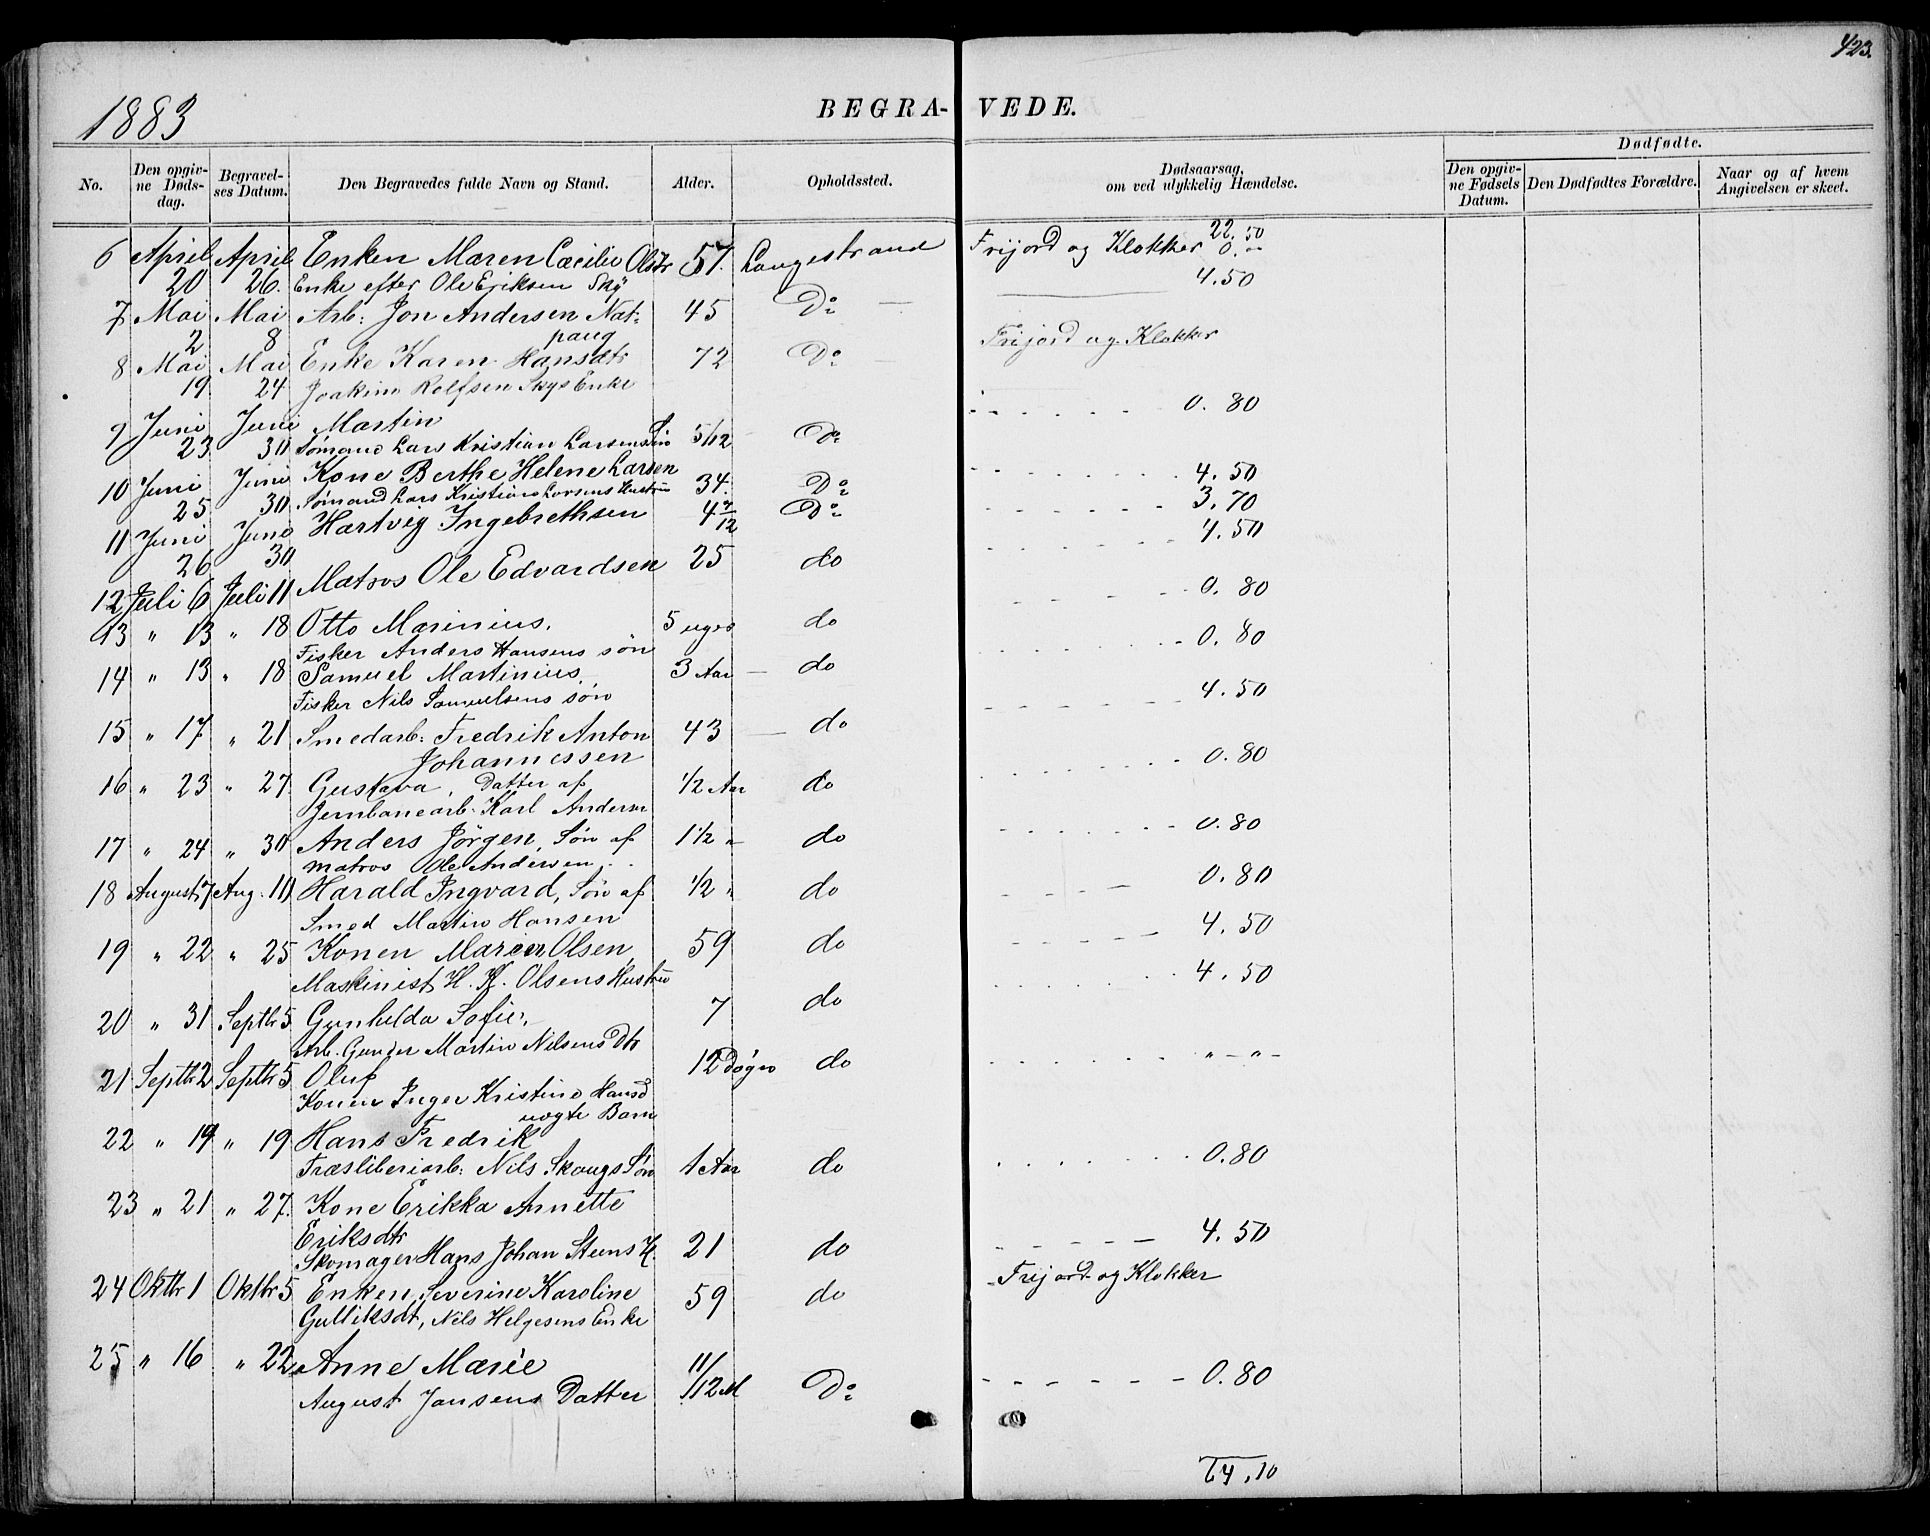 423.
1883
BEGRA- VEDE.
No. Den opgivne Dødsdag. Begravelses Datum. Den Begravedes fulde Navn og Stand. Alder. Opholdssted. Dødsaarsag, om ved ulykkelig Hændelse. Dødfødte. Den opgivne Fødsels Datum. Den Dødfødtes Forældre. Naar og af hvem Angivelsen er skeet.
22.50
6 April 20 April 26. Enken Maren Cæcilie Olsdtr 57. Langestrand Frijord og Klokker 0."
Enke efter Ole Eriksen Sky 4.50
7 Mai 2 Mai 8 Arb: Jon Andersen Nat- 45 Do
paug Frijord og Klokker
8 Mai 19 Mai 24 Enke Karen Hansdtr 72 Do
Joakim Rolfsen Skys Enke
9 Juni 23 Juni 30 Martin 5/12 Do 0.80
Sømand Lars Kristian Larsens Søn
10 Juni 25 Juni 30 Kone Berthe Helene Larsen 34. Do 4.50
Sømand Lars Kristian Larsens Hustru
11 Juni 26 Juni 30 Hartvig Ingebrethsen 4 7/12 Do 3.70
12 Juli 6 Juli 11 Matros Ole Edvardsen 25 do 4.50
13 " 13 " 18 Otto Marinius. 5 uger do 0.80
Fisker Anders Hansens søn
14 " 13 " 18 Samuel Martinius. 3 Aar do 0.80
Fisker Nils Samuelsens søn
15 " 17 " 21 Smedarb: Fredrik Anton 43 do 4.50
Johannessen
16 " 23 " 27 Gustava, Datter af 1/2 Aar do 0.80
Jernbanearb. Karl Andersen
17 " 24 " 30 Anders Jörgen, Søn af 1 1/2 " do 0.80
Matros Ole Andersen
18 August 7 Aug. 10 Harald Ingvard, Søn af 1/2 " do 0.80
Smed Martin Hansen
19 " 22 " 25 Konen Maren Olsen, 59 do 4.50
Maskinist H. K. Olsens Hustru
20 " 31 Septbr 5 Gunhilda Sofie, 7 do 4.50
Arb. Gunder Martin Nilsens Dtr
21 Septbr 2 Septbr 5 Oluf 12 Døgn do " - " -
Konen Inger Kristine Hansd
uægte Barn
22 " 14 " 19 Hans Fredrik
Træsliberiarb: Nils Skaugs Søn 1 Aar do 0.80
23 " 21 " 27. Kone Erikka Annette
Eriksdtr
Skomager Hans Johan Steens H. 21 do 4.50
24 Oktbr 1 Oktbr 5 Enken Severine Karoline 59 do Frijord og Klokker
Gulliksdt, Nils Helgesens Enke
25 " 16 " 22 Anne Marie 11/12 M Do 0.80
August Jansens Datter
64.10